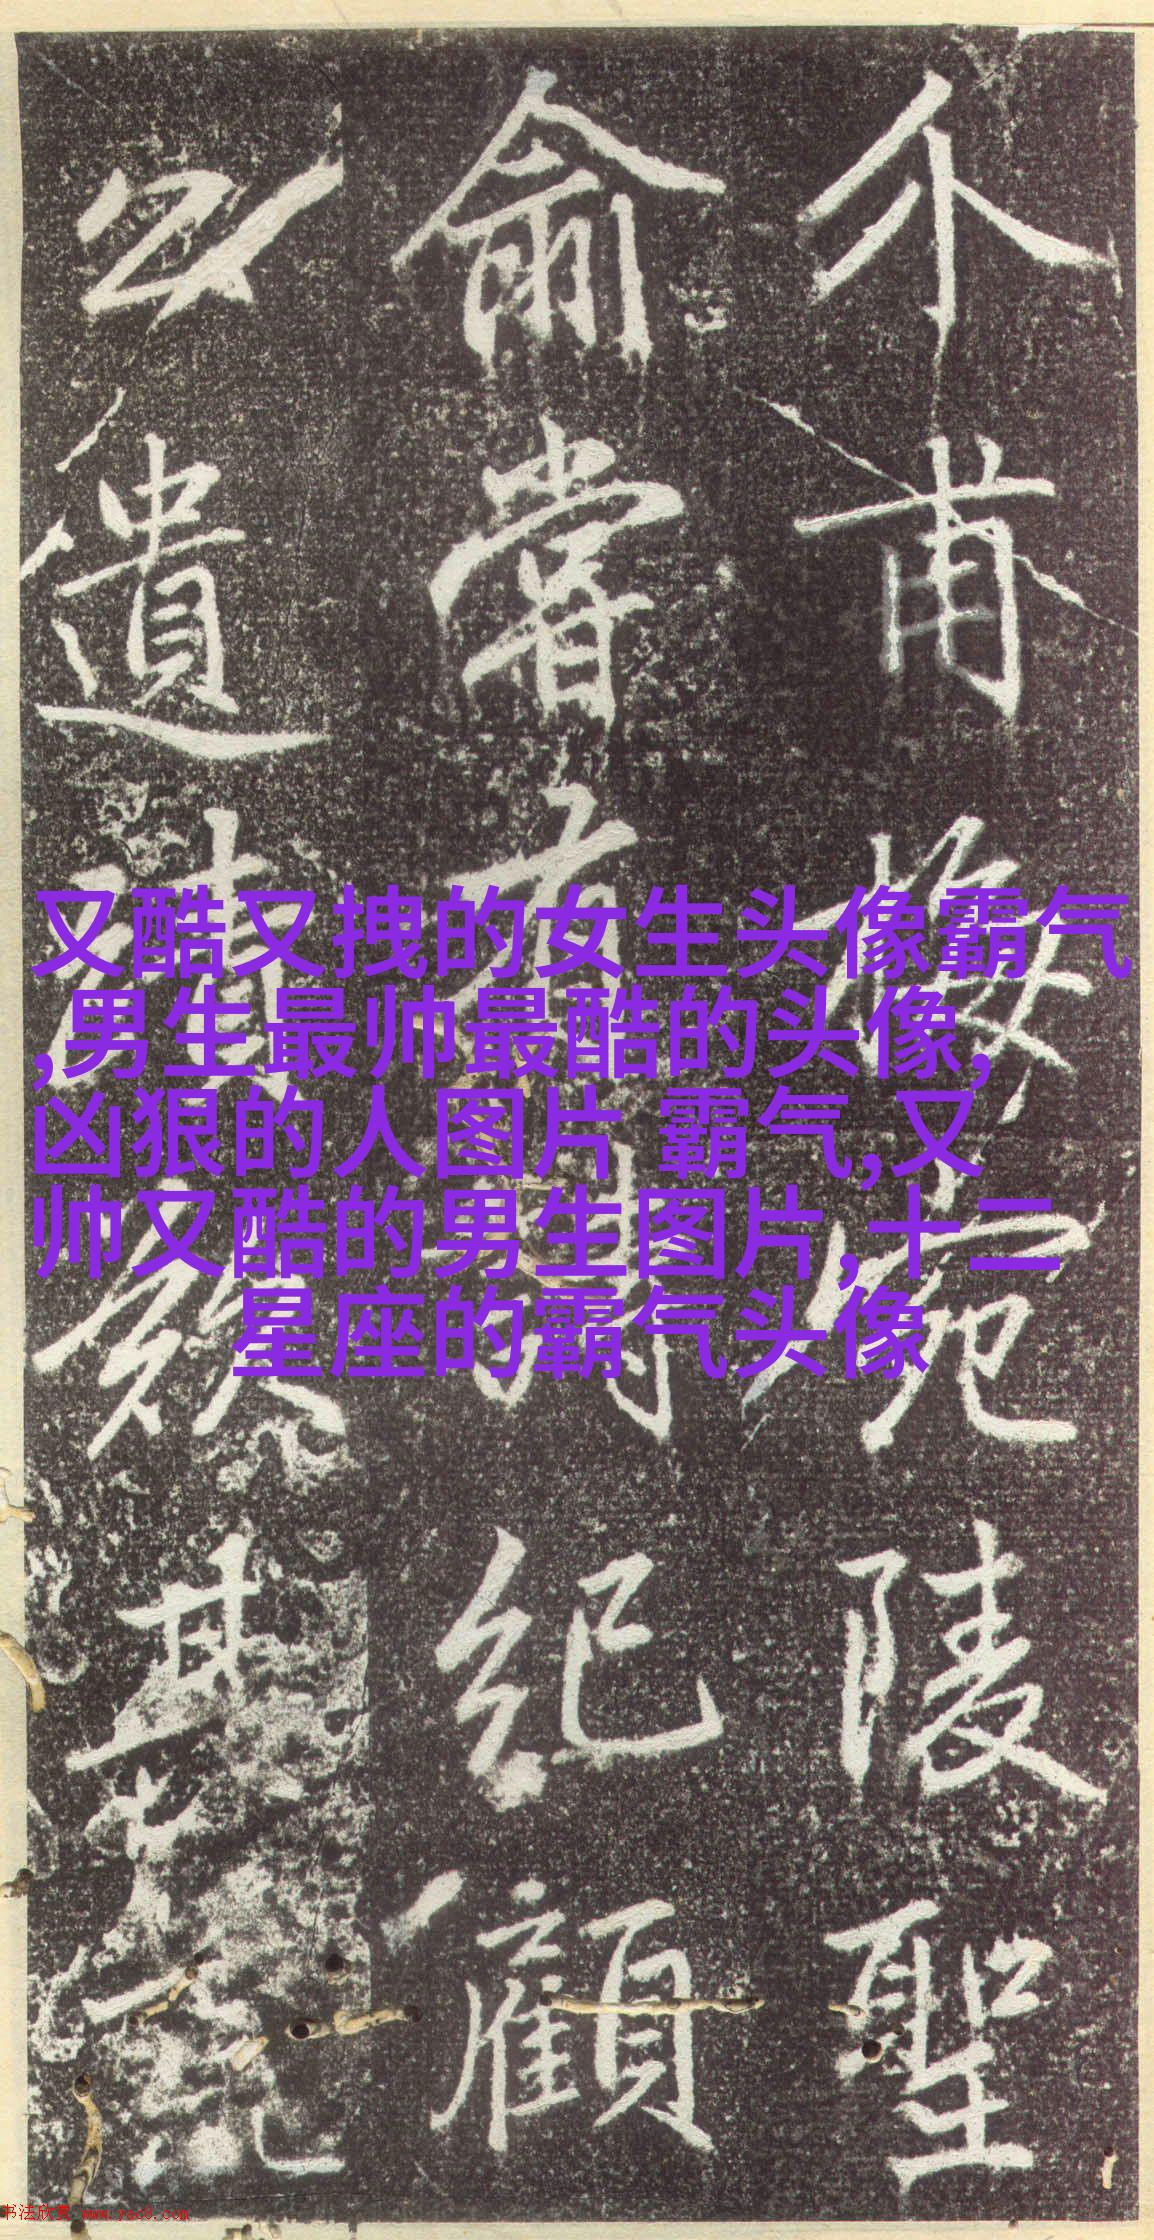 介甫梅宛陵聖
俞嘗有詩紀顧
公遺
又酷又拽的女生头像霸气
,男生最帅最酷的头像,
凶狠的人图片 霸气,又
帅又酷的男生图片,十二
星座的霸气头像
书法欣赏 www.yac8.com